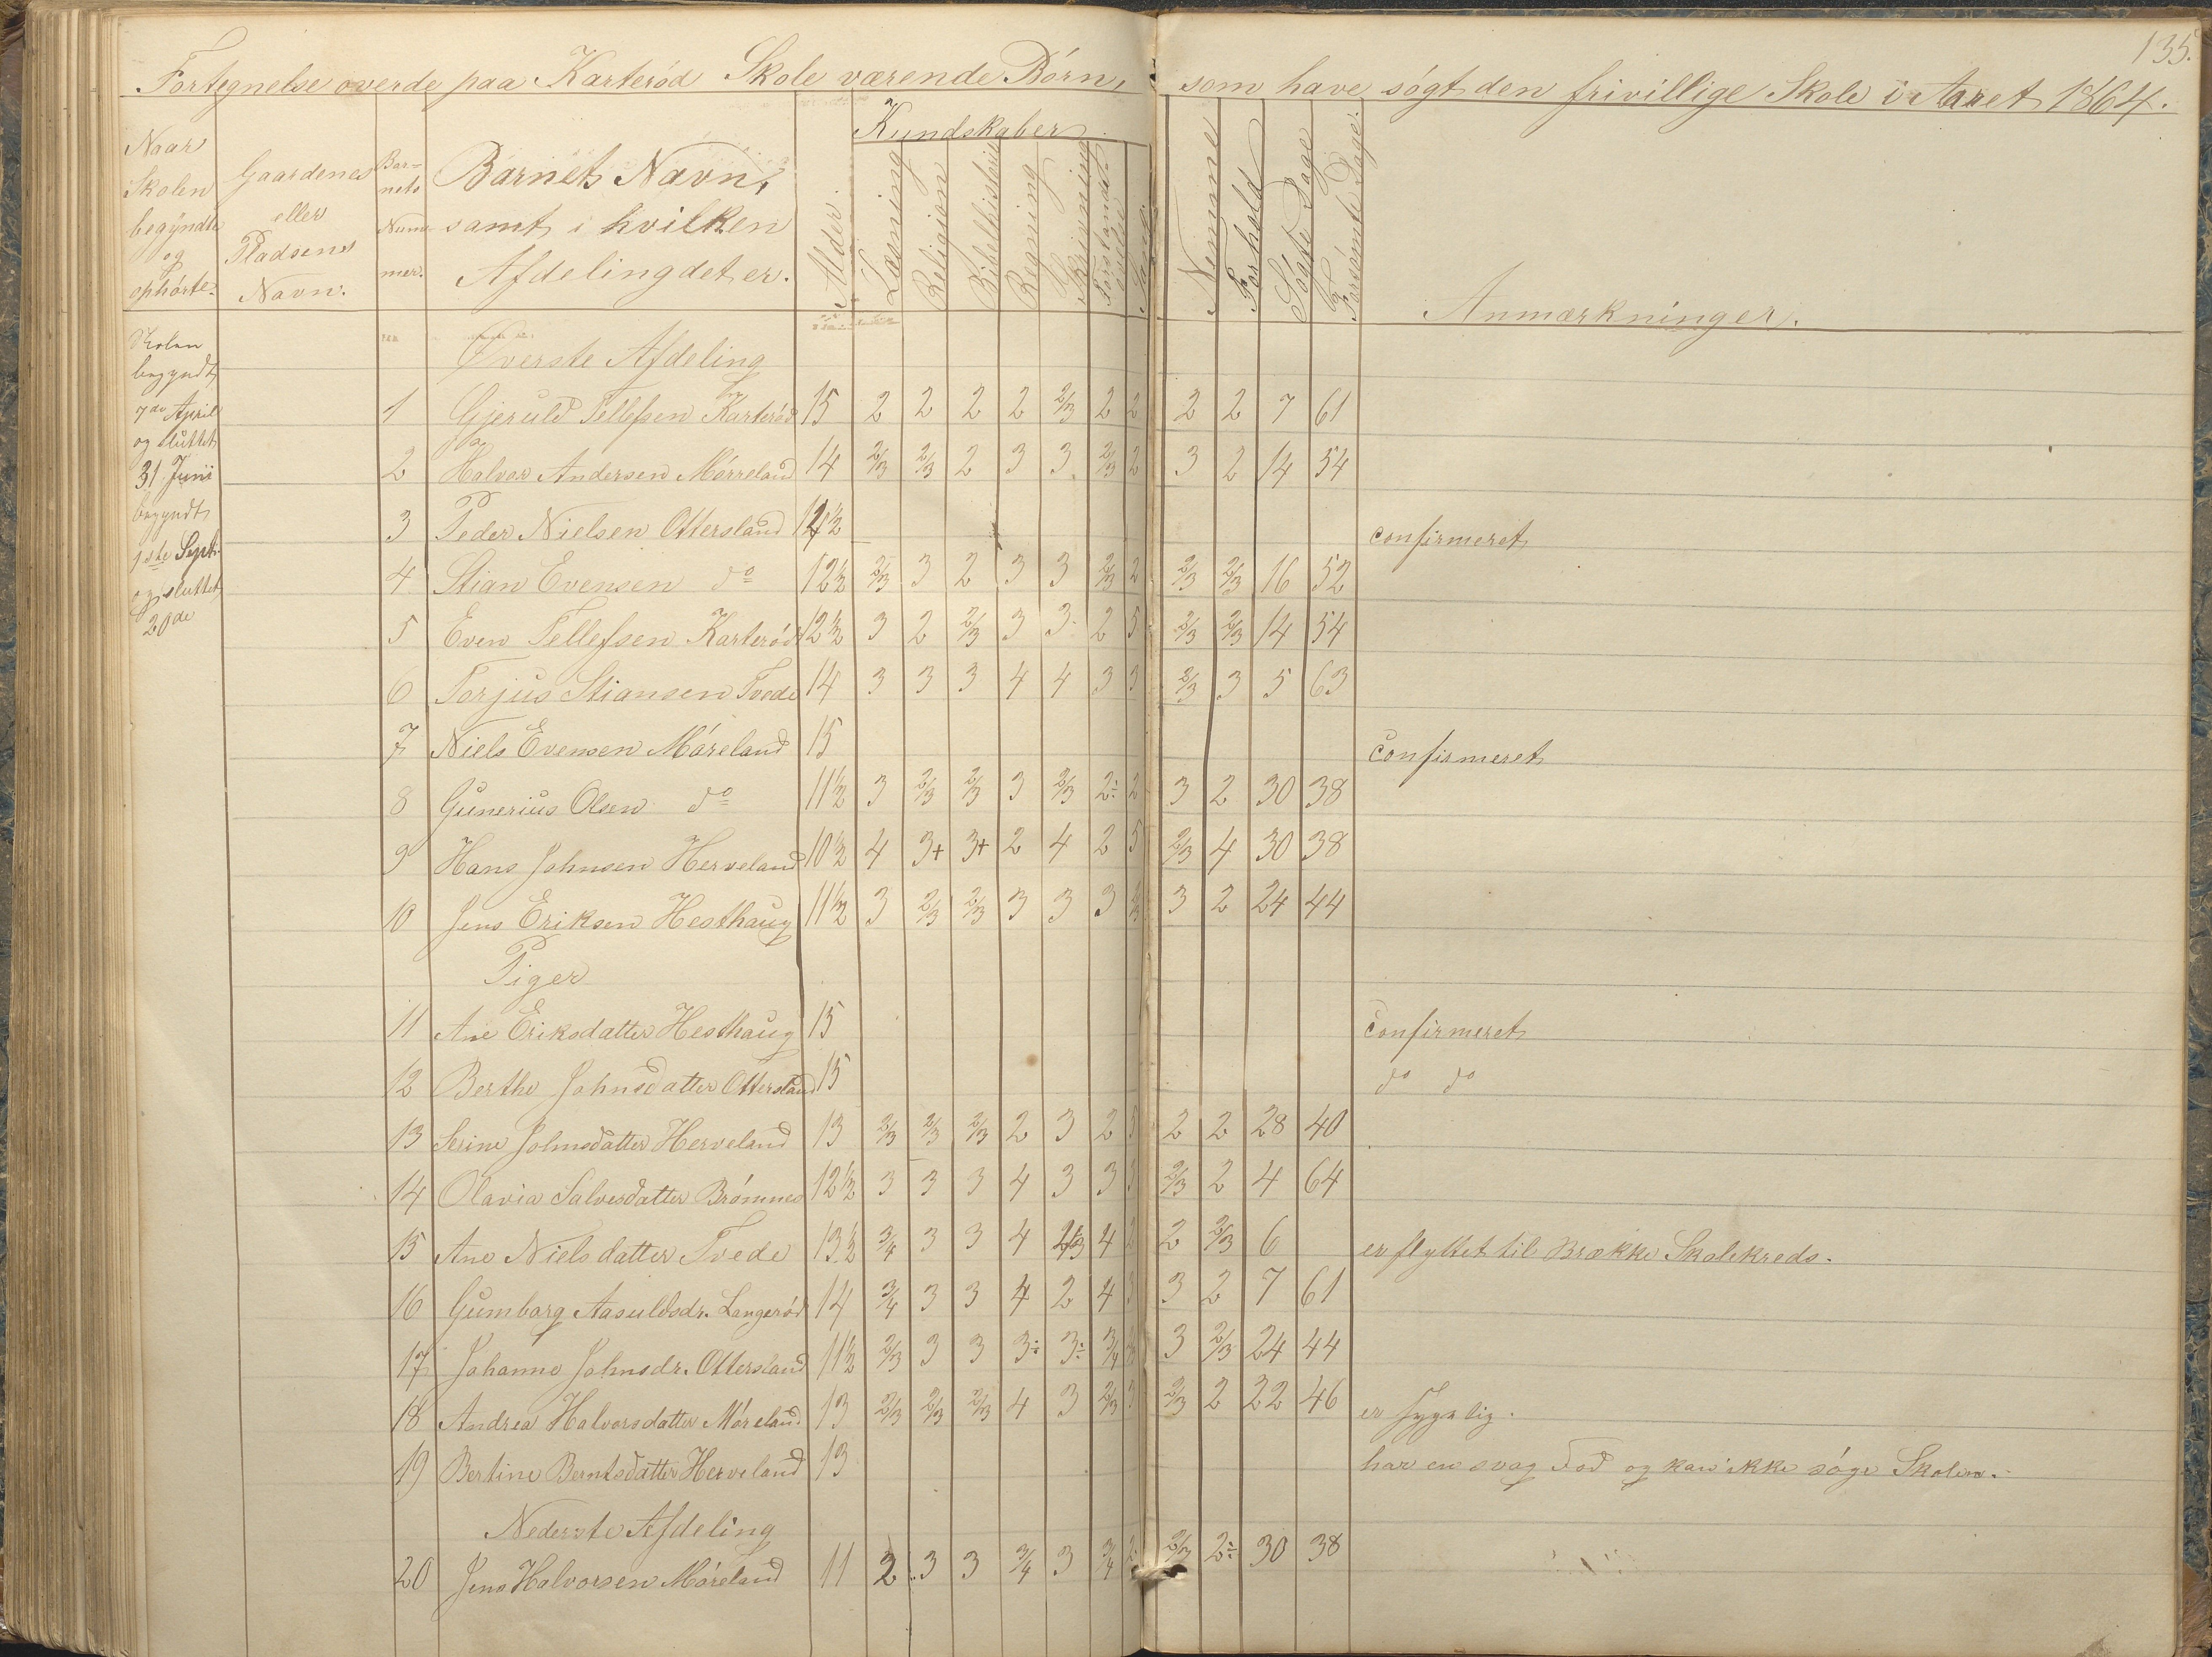 135.
Fortegnelse over de paa Karterød Skole værende Børn, som have søgt den frivillige Skole i Aaret 1864.
Naar Skolen begyndte og ophørte.
Gaardenes eller Pladsens Navn.
Barnets Nummer.
Barnets Navn, samt i hvilken Afdeling det er.
Alder
Kundskaber
Læsning
Religion
Bibelhistorie
Regning
Skrivning
Forstands
Sang
Nemme
Forhold
Søgte Dage
Forsømte Dage.
Anmærkninger.
Skolen
begyndt
7de April
og sluttet
31 Juni
begyndt
1ste Sept.
og sluttet
20de
Øverste Afdeling
1 Gjeruld Tellefsen Karterød 15 2 2 2 2 2/3 2 2 2 2 7 61
2 Halvor Andersen Mørreland 14 2/3 2/3 2 3 3 2/3 2 3 2 14 54
3 Peder Nielsen Ottersland 14½ confirmeret
4 Stian Evensen do 12½ 2/3 3 2 3 3 2/3 2 2/3 2/3 16 52
5 Even Tellefsen Karterød 12½ 3 2 2/3 3 3 2 5 2/3 2/3 14 54
6 Torjus Stiansen Tvede 14 3 3 3 4 4 3 3 2/3 3 5 63
7 Niels Evensen Møreland 15 Confirmeret
8 Gunerius Olsen do 11½ 3 2/3 2/3 3 2/3 2÷ 2 3 2 30 38
9 Hans Johnsen Herveland 10½ 4 3+ 3+ 2 4 2 5 2/3 4 30 38
10 Jens Eriksen Hesthaug 11½ 3 2/3 2/3 3 3 3 3 2 24 44
Piger
11 Ane Eriksdatter Hesthaug 15 Confirmeret
12 Berthe Johnsdatter Ottersland 15 do do
13 Serine Johnsdatter Herveland 13 2/3 2/3 2/3 2 3 2 5 2 2 28 40
14 Olavia Salvesdatter Brømnes 12½ 3 3 3 4 3 3 3 2/3 2 4 64
15 Ane Nielsdatter Tvede 13½ 3/4 3 3 4 2/3 4 2 2 2/3 6 er flyttet til Brække Skolekreds.
16 Gumborg Aasuldsdr. Langerød 14 3/4 3 3 4 2 4 3 3 2 7 61
17 Johanne Johnsdr. Ottersland 11½ 2/3 3 3 3÷ 3÷ 3/4 3 2/3 24 44
18 Andrea Halvorsdatter Møreland 13 2/3 2/3 2/3 4 3 2/3 3 2/3 2 22 46 er sygelig.
19 Bertine Berntsdatter Herveland 13 har en svag Fod og kan ikke søge Skolen.
Nederste Afdeling
20 Jens Halvorsen Møreland 11 2 3 3 3/4 3 3/4 2 2/3 2÷ 30 38